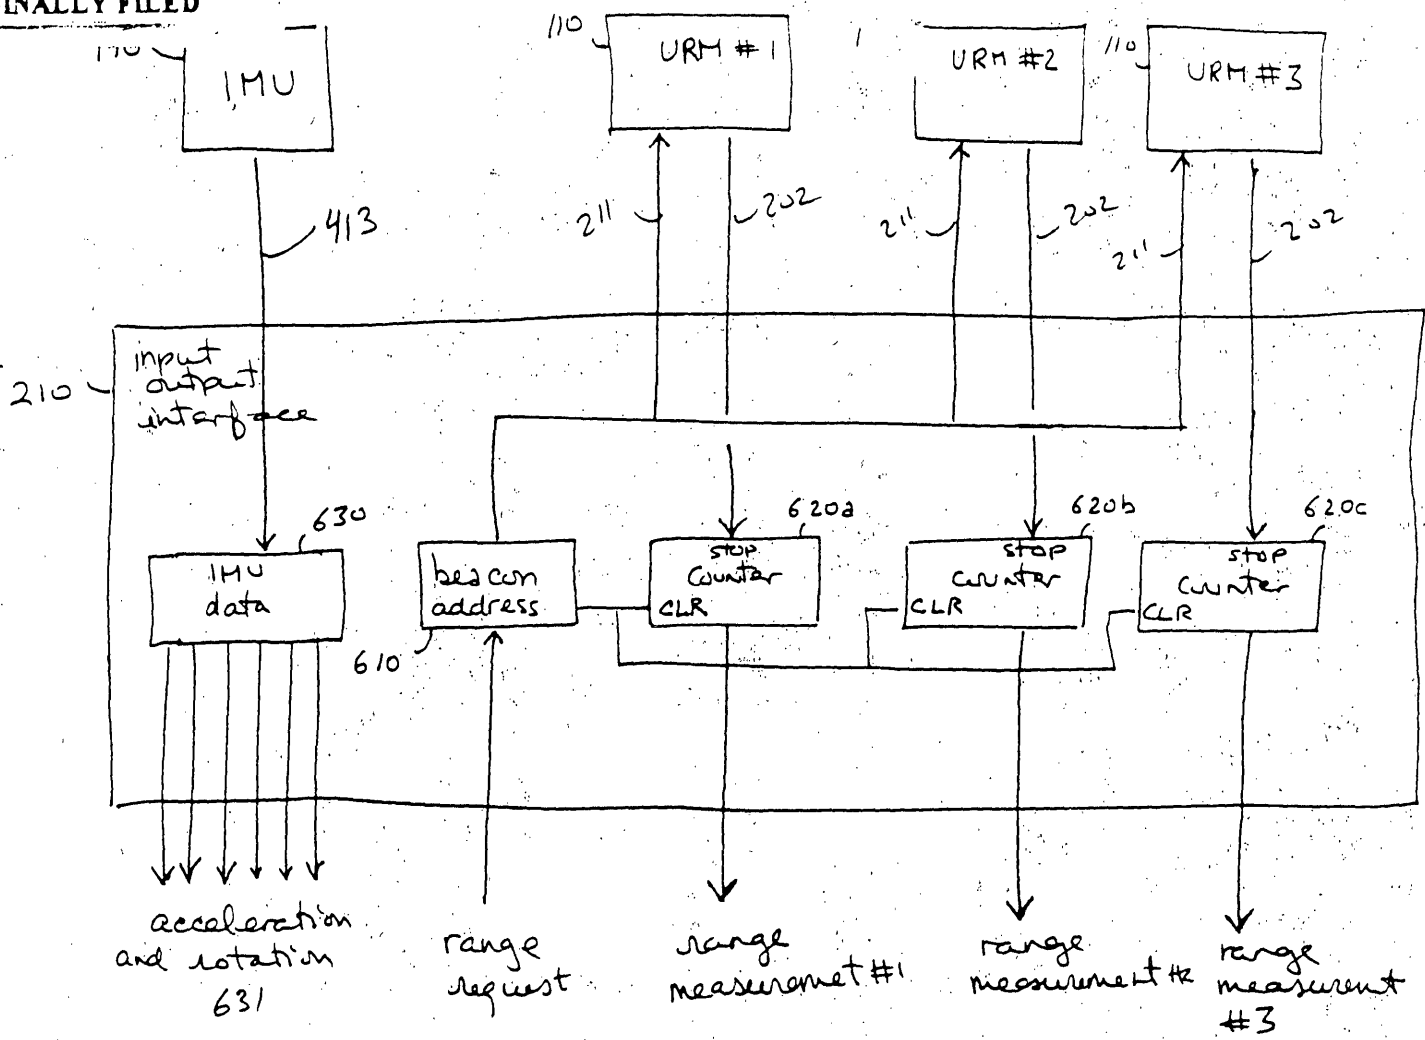 INALLY FILED
IMU
110
URM #1
URM #2
110
URM #3
413
211
202
211
202
211
202
210
input
output
interface
630
620a
620b
620c
IMU
data
beacon
address
stop
counter
CLR
stop
counter
CLR
stop
counter
CLR
610
acceleration
and rotation
631
range
request
range
measuremet #1
range
measurement #2
range
measurent
#3